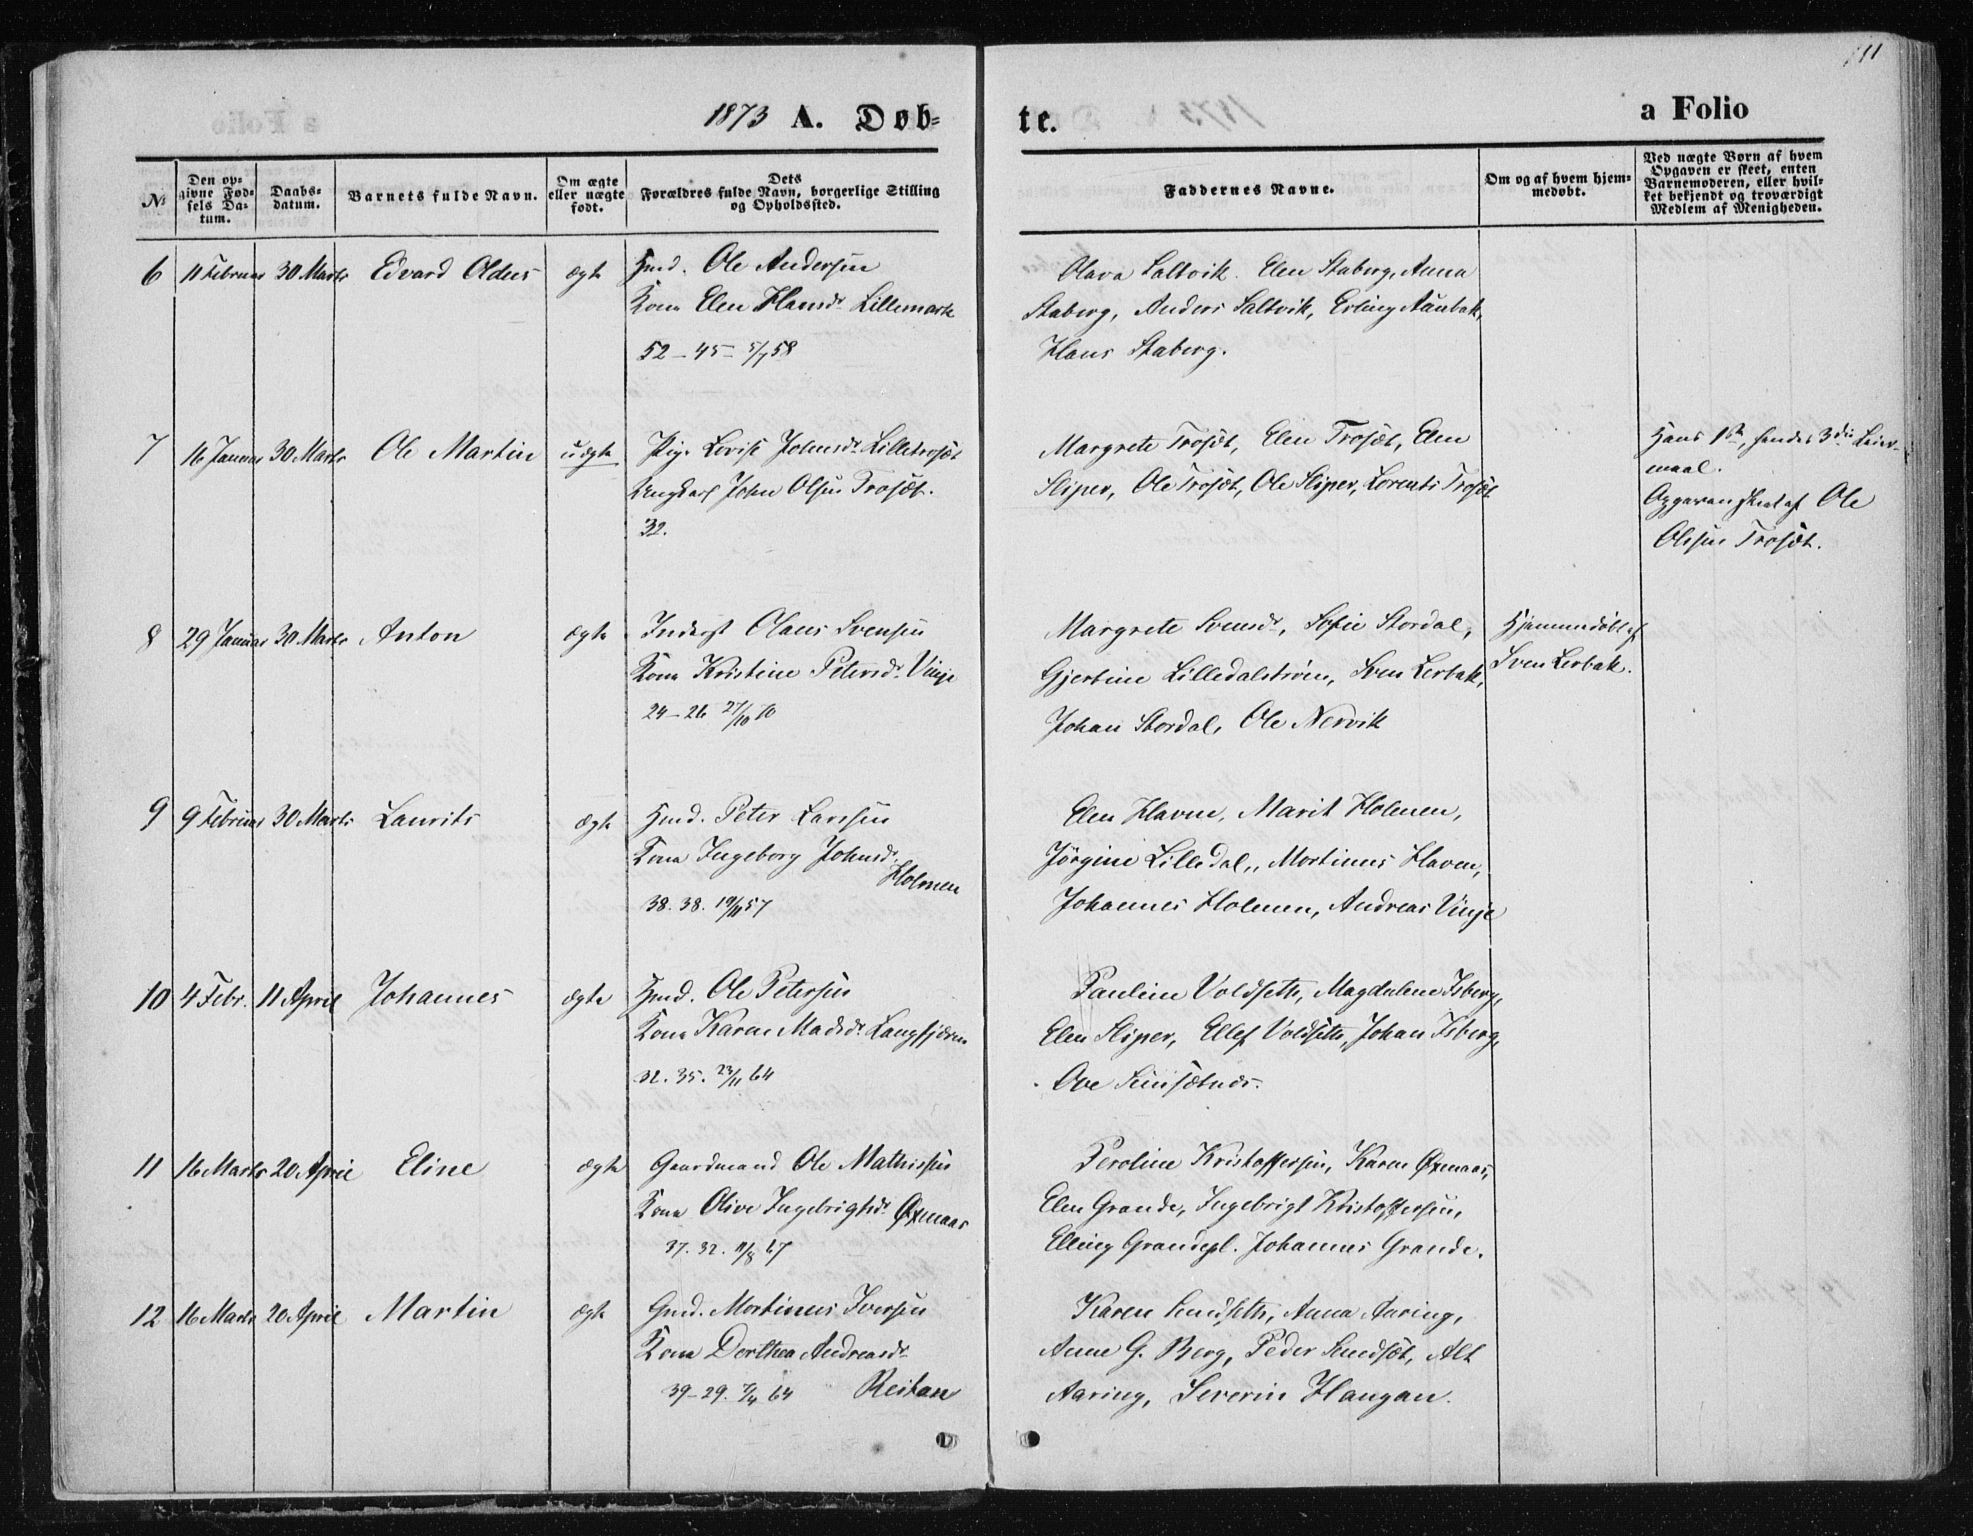 111
1873 A. Døb-
te.
a Folio
№
Den op-
givne Fød-
sels Da-
tum.
Daabs-
datum.
Barnets fulde Navn.
Om ægte
eller uægte
født.
Dets
Forældres fulde Navn, borgerlige Stilling
og Opholdssted.
Faddernes Navne.
Om og af hvem hjem-
medøbt.
Ved uægte Børn af hvem
Opgaven er skeet, enten
Barnemoderen, eller hvil-
ket bekjendt og troværdigt
Medlem af Menigheden.
6 11 Februar 30 Marts Edvard Oldus ægte Hmd. Ole Andersen
Kone Elen Hansdr Lillemark
52 - 45 - 5/7 58
Olava Saltvik. Elen Staberg, Anna
Staberg, Anders Saltvik, Erling Aünbak,
Hans Staberg.
7 16 Januar 30 Marts Ole Martin uægte Pige Lovise Johnsdr Lilletrosæt
Ungkarl John Olsen Trosæt.
32.
Margrete Trosæt, Elen Trosæt, Elen
Sliper, Ole Trosæt, Ole Sliper, Lorents Trosæt
Hans 1ste, hendes 3die Leier-
maal.
Opgaven skeet af Ole
Olssen Trosæt.
8 29 Januar 30 Marts Anton ægte Inderst Olaus Svensen
Kone Kristine Petersdr Vinje
24 - 26 27/10 70
Margrete Svensdr, Sofie Stordal,
Gjertine Lilledalstrøm, Sven Lerbak,
Johan Stordal, Ole Nervik
Hjemmedøbt af
Sven Lerbak.
9 9 Februar 30 Marts Laurits ægte Hmd. Peter Larssen
Kone Ingeborg Johnsdr
Holmen
38. 38. 19/11 57
Elen Havne, Marit Holmen,
Jørgine Lilledal, Mortinus Haven,
Johannes Holmen, Andreas Vinje
10 4 Febr. 11 April Johannes ægte Hmd. Ole Petersen
Kone Karen Madsdr Langfjæren
32. 35. 23/11 64
Pauline Voldseth, Magdalene Isberg,
Elen Sliper, Ellef Voldseth, Johan Isberg,
Ove
11 16 Marts 20 April Eline ægte Gaardmand Ole Mathissen
Kone Olive Ingebrigtsdr Øxnaas
37. 32. 11/8 67
Peroline Kristoffersen, Karen Øxnaas,
Elen Grande, Ingebrigt Kristoffersen,
Elling Grandepl. Johannes Grande.
12 16 Marts 20 April Martin ægte Gmd. Mortinus Iversen
Kone Dorthea Andreasdr
39 - 29. 7/4 64 Reitan
Karen Sundseth, Anna Aaring,
Anne G. Berg, Peder Sundsæt, Alt
Aaring, Severin Haugan.